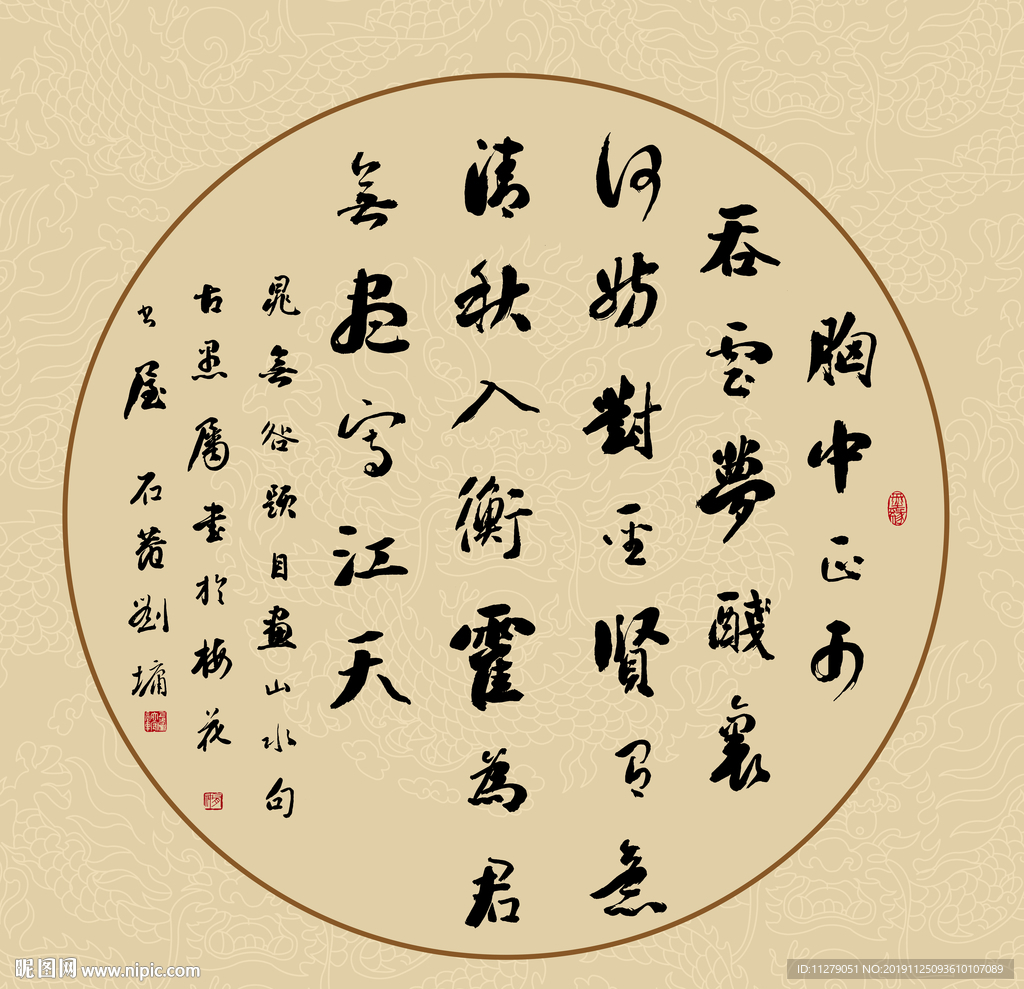 胸中正可
吞雲夢醆裏
何妨對聖賢有意
清秋入衡霍為君
無盡寫江天
晁無咎題自畫山水句
古愚屬書於梅花
書屋 石菴劉墉
昵图网 www.nipic.com
ID:11279051 NO:20191125093610107089